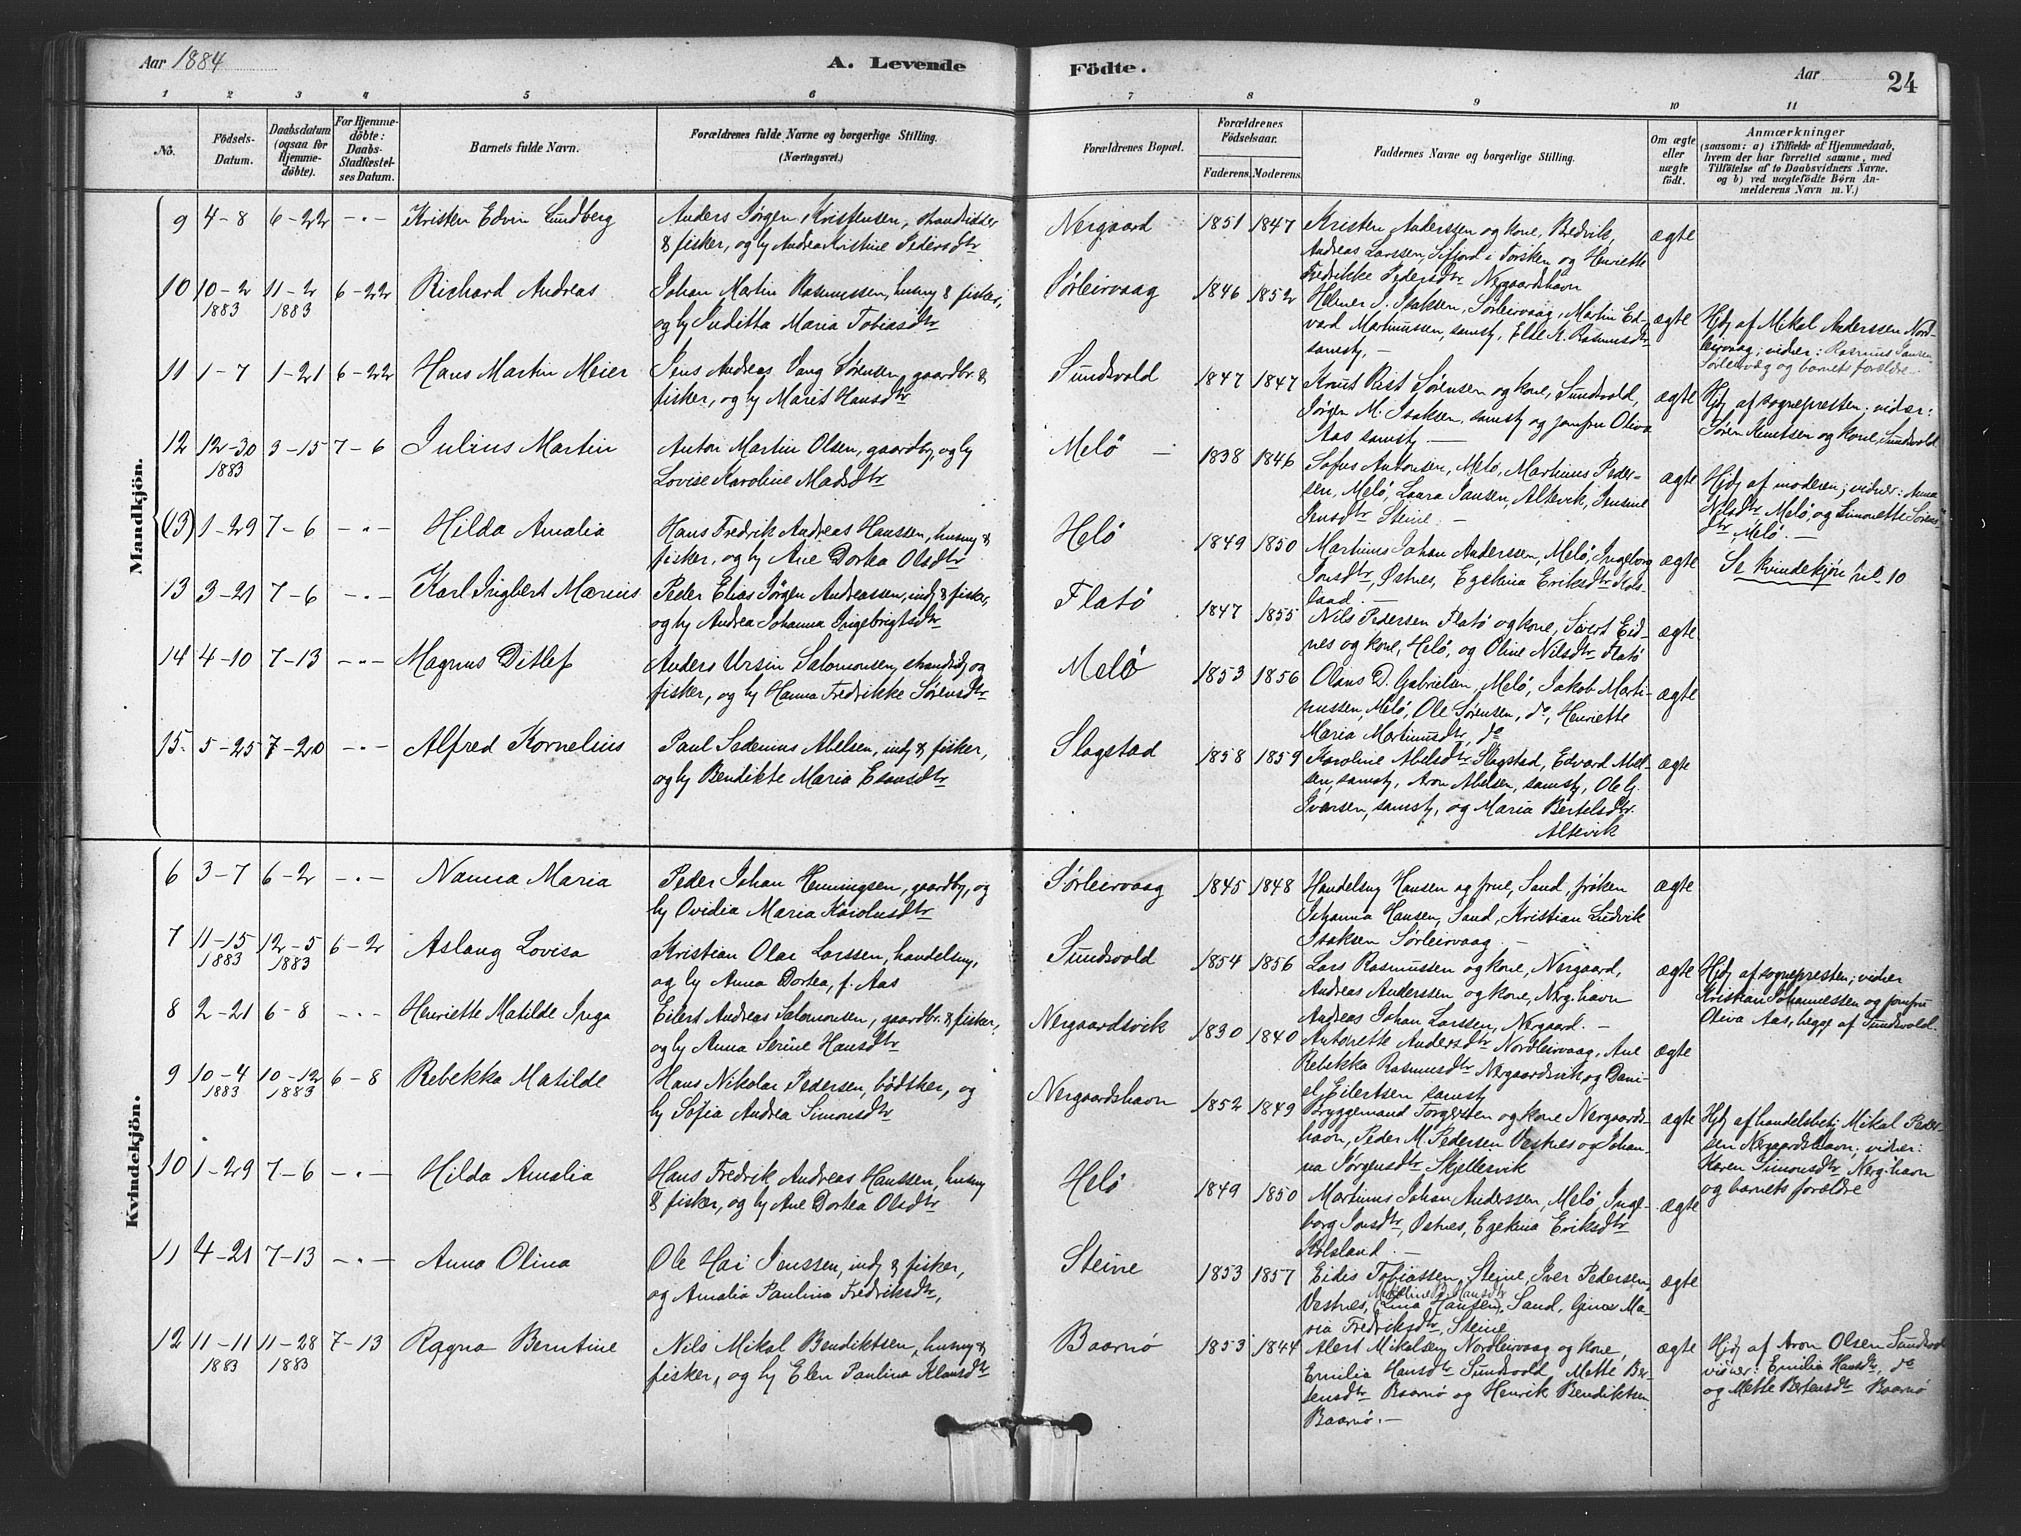 Aar 1884
A. Levende Födte.
Aar
24
1 2 3 4 5 6 7 8 9 10 11
No.
Födsels-Datum.
Daabsdatum (ogsaa for Hjemmedöbte).
For Hjemmedöbte: Daabs-Stadfæstelses Datum.
Barnets fulde Navn.
Forældrenes fulde Navne og borgerlige Stilling. (Næringsvei.)
Forældrenes Bopæl.
Forældrenes Födselsaar.
Faderens. Moderens.
Faddernes Navne og borgerlige Stilling.
Om ægte eller uægte födt.
Anmærkninger
(saasom: a) i Tilfælde af Hjemmedaab,
hvem der har forrettet samme, med
Tilföielse af to Daabsvidners Navne.
og b) ved uægtefödte Börn An-
melderens Navn m. V.)
Mandkjön.
9 4-8 6-22 -"- Kristen Edvin Lundberg
Anders Jørgen Kristensen, strandsidder
& fisker, og hy Andrea Kristine Pedersdtr
Nergaard 1851 1847
Kristen Anderssen og kone, Bredvik,
Andreas Larssen, Sifjord i Torsken og Henriette
Fredrikke Pedersdtr Nergaardshavn
ægte
10 10-2 1883 11-2 1883 6-22 Richard Andreas
Johan Martin Rasmussen, husmd & fisker,
og hy Juditta Maria Tobiasdtr
Sørleirvaag 1846 1852
Helmer J. Isaksen, Sørleirvaag, Martin Ed-
vard Martinussen, samsty, Else M. Rasmusdtr
samsty, -
ægte
Hjdj af Mikal Anderssen Nord-
leirvaag; vidner: Rasmus Jansen
Sørleirvåg og barnets forældre.
11 1-7 1-21 6-22 Hans Martin Meier
Jens Andreas Vang Sørensen, gaardbr. &
fisker, og hy Marit Hansdtr
Sundsvold 1847 1847
Knut Rist Sørensen og kone, Sundsvold,
Jørgen M. Isaksen, samsty og jomfru Oliva
Aas samsty -
ægte
Hjdj af sognepresten; vidner:
Søren Knutsen og kone, Sundsvold.
12 12-30 1883 3-15 7-6 Julius Martin
Anton Martin Olsen, gaardby, og hy
Lovise Karoline Madsdtr
Melö - 1838 1846
Sofus Antonsen, Melö, Martinus Peder-
sen, Melö, Laura Jansen, Altevik, Jensine
Jensdtr Steine. -
ægte
Hjdj af moderen; vidner: Anna
Nilsdtr Melö, og Simonette Sørens-
dtr Melö. -
(13) 1-29 7-6 -"- Hilda Amalia
Hans Fredrik Andreas Hanssen, husmy &
fisker, og hy Ane Dortea Olsdtr
Helö 1849 1850
Martinus Johan Anderssen, Melö, Ingeborg
Jonsdtr, Østnes, Ezekina Eriksdtr Kols-
land. -
ægte
Se kvindekjön nr. 10
13 3-21 7-6 -"- Karl Ingbert Marius
Peder Elias Jörgen Andreassen, indj & fisker,
og hy Andrea Johanna Ingebrigtsdtr
Flatö 1847 1855
Nils Pedersen Flatö og kone, Sivert Eid-
nes og kone, Helö, og Oline Nilsdtr Flatö
ægte
14 4-10 7-13 -"- Magnus Ditlef
Anders Ursin Salomonsen, strandsidj og
fisker, og hy Hanna Fredrikke Sørensdtr
Melö 1853 1856
Olaus D. Gabrielsen, Melö, Jakob Marti-
nussen, Melö, Ole Sørensen, do, Henriette
Maria Martinusdtr, do
ægte
15. 5-25 7-20 -"- Alfred Kornelius
Paul Sedenius Abelsen, indj & fisker,
og hy Bendikte Maria Esausdtr
Slagstad 1858 1859
Karoline Abelsdtr Slagstad, Edvard Abel-
sen, samsty, Aron Abelsen, samsty, Ole G.
Iversen, samsty, og Maria Bertelsdtr
Altevik
ægte
Kvindekjön.
6 3-7 6-2 -"- Nanna Maria
Peder Johan Henningsen, gaardby, og
hy Ovidia Maria Karolusdtr
Sørleirvaag 1845 1848
Handelsmy Hansen og frue, Sand, frøken
Johanna Hansen, Sand, Kristian Ludvik
Isaksen Sørleirvaag -
ægte
7 11-15 1883 12-5 1883 6-2 Aslaug Lovisa
Kristian Olai Larssen, handelsmy,
og hy Anna Dortea, f. Aas
Sundsvold 1854 1856
Lars Rasmussen og kone, Nergaard,
Andreas Anderssen og kone, Nerg.havn
Andreas Johan Larssen, Nergaard. -
ægte
Hjdj af sognepresten; vidner
Kristian Johannessen og jomfru
Oliva Aas, begge af Sundsvold.
8 2-21 6-8 -"- Henriette Matilde Inga
Eilert Andreas Salomonsen, gaardbr. & fisker,
og hy Anna Serine Hansdtr
Nergaardsvik 1830 1840
Antonette Andersdtr Nordleirvaag, Ane
Rebekka Rasmusdtr Nergaardsvik og Dani-
el Eilertsen samsty
ægte
9 10-4 1883 10-12 1883 6-8 Rebekka Matilde
Hans Nikolai Pedersen, bødtker, og
hy Sofia Andrea Simonsdtr
Nergaardshavn 1852 1849
Bryggemand Torgersen og kone Nergaards-
havn, Peder M. Pedersen Vestnes og Johan-
na Jørgensdtr Skjellesvik
ægte
Hjdj af handelsbetj Mikal Peder-
sen Nergaardshavn; vidner:
Karen Simonsdtr Nerg.havn
og barnets forældre
10 1-29 7-6 -"- Hilda Amalia
Hans Fredrik Andreas Hanssen, husmy
& fisker, og hy Ane Dortea Olsdtr
Helö 1849 1850
Martinus Johan Anderssen, Melö, Inge-
borg Jonsdtr, Østnes, Ezekina Eriksdtr
Kolsland. -
ægte
11 4-21 7-13 -"- Anna Olina
Ole Hai Jenssen, indj & fisker,
og Amalia Paulina Fredriksdtr,
Steine 1853 1857
Eidis Tobiassen, Steine, Iver Pedersen,
Vestnes, (Lina Hansen), Sand, Gina Ma-
ria Fredriksdtr, Steine
ægte
12 11-11 1883 11-28 1883 7-13 Ragna Berntine
Nils Mikal Bendiktsen, husmy &
fisker, og hy Elen Paulina Klausdtr
Baarnø 1853 1844
Alert Mikalsen Nordleirvaag og kone,
Emilia Hansdtr Sundsvold, Mette Ber-
tensdtr Baarnø og Henrik Bendiktsen
Baarnø. -
ægte
Hjdj af Aron Olsen Sundsvold
vidner: Emilia Hansdtr, do
og Mette Bertensdtr Baarnø